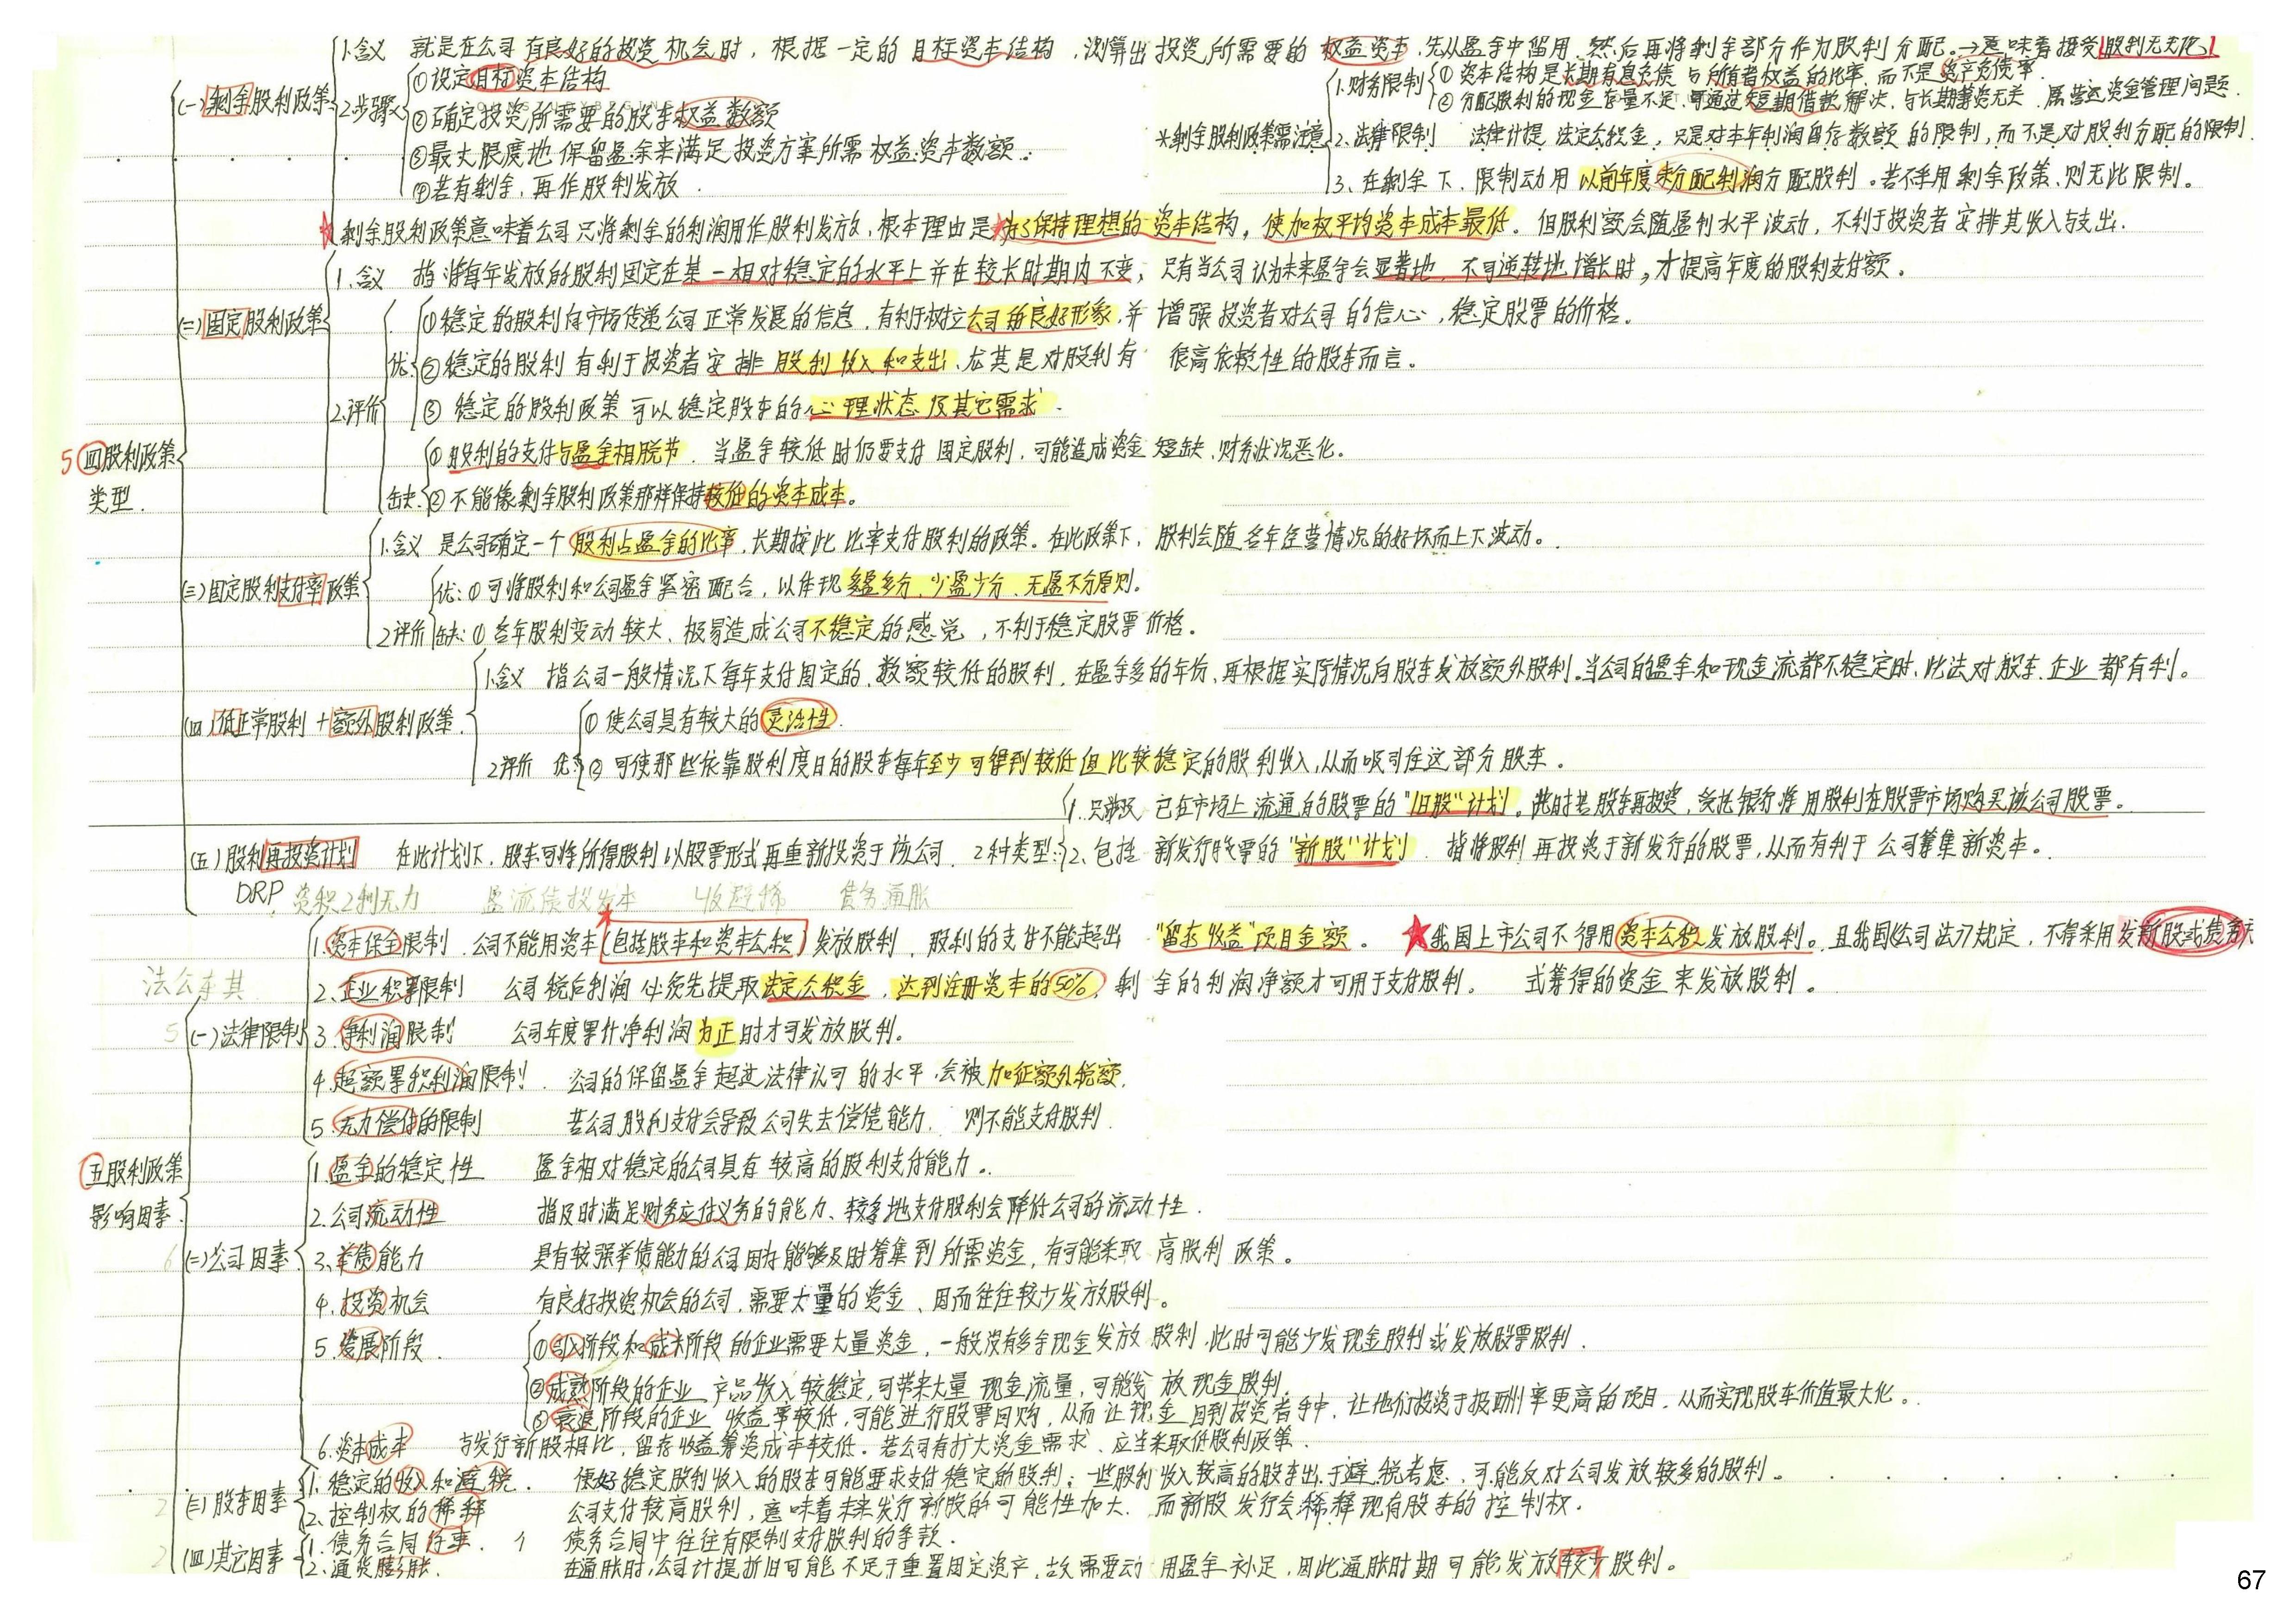 1.含义 就是在公司有良好的投资机会时,根据一定的目标资本结构,测算出投资所需要的权益资本,先从盈余中留用,然后再将剩余部分作为股利分配。→意味着接受股利无关论
(一)剩余股利政策
2.步骤
①设定目标资本结构
②确定投资所需要的股东权益数额
③最大限度地保留盈余来满足投资方案所需权益资本数额.
④若有剩余,再作股利发放.
*剩余股利政策需注意
1.财务限制 ①资本结构是长期有息负债与所有者权益的比率,而不是资产负债率.
②分配股利的现金存量不足,可通过短期借款解决,与长期筹资无关.属营运资金管理问题.
2.法律限制 法律计提法定公积金,只是对本年利润留存数额的限制,而不是对股利分配的限制.
3.在剩余下,限制动用以前年度未分配利润分配股利。若不采用剩余政策,则无此限制。
★剩余股利政策意味着公司只将剩余的利润用作股利发放,根本理由是★为了保持理想的资本结构,使加权平均资本成本最低。但股利额会随盈利水平波动,不利于投资者安排其收入与支出.
1.含义 指将每年发放的股利固定在某一相对稳定的水平上并在较长时期内不变,只有当公司认为未来盈余会显著地、不可逆转地增长时,才提高年度的股利支付额。
(二)固定股利政策
2.评价
优:①稳定的股利向市场传递公司正常发展的信息,有利于树立公司的良好形象,并增强投资者对公司的信心,稳定股票的价格。
②稳定的股利有利于投资者安排股利收入和支出,尤其是对股利有很高依赖性的股东而言。
③稳定的股利政策可以稳定股东的心理状态及其它需求.
5 四股利政策类型.
缺:①股利的支付与盈余相脱节.当盈余较低时仍要支付固定股利,可能造成资金短缺、财务状况恶化。
②不能像剩余股利政策那样保持较低的资本成本。
1.含义 是公司确定一个股利占盈余的比率,长期按此比率支付股利的政策。在此政策下,股利会随各年经营情况的好坏而上下波动。
(三)固定股利支付率政策
2.评价 优:①可将股利和公司盈余紧密配合,以体现多盈多分、少盈少分、无盈不分原则。
缺:①各年股利变动较大、极易造成公司不稳定的感觉,不利于稳定股票价格。
1.含义 指公司一般情况下每年支付固定的、数额较低的股利,在盈余多的年份,再根据实际情况向股东发放额外股利。当公司的盈余和现金流都不稳定时,此法对股东、企业都有利。
(四)低正常股利+额外股利政策.
2.评价 优 ①使公司具有较大的灵活性.
②可使那些依靠股利度日的股东每年至少可得到较低但比较稳定的股利收入,从而吸引住这部分股东.
1.只涉及已在市场上流通的股票的"旧股"计划。此时若股东再投资,受托银行将用股利在股票市场购买该公司股票。
(五)股利再投资计划 在此计划下,股东可将所得股利以股票形式再重新投资于该公司.2种类型:
2.包括新发行股票的"新股"计划.指将股利再投资于新发行的股票,从而有利于公司筹集新资本。
DRP 资积2利无力 盈流债投发本 收避稀 债务通胀
1.资本保全限制.公司不能用资本(包括股本和资本公积)发放股利,股利的支付不能超出"留存收益"项目金额。★我国上市公司不得用资本公积发放股利。且我国《公司法》规定,不得采用发新股或债务方式筹得的资金来发放股利。
法公东其
2.企业积累限制 公司税后利润必须先提取法定公积金,达到注册资本的50%,剩余的利润净额才可用于支付股利。
5 (一)法律限制
3.净利润限制 公司年度累计净利润为正时才可发放股利。
4.超额累积利润限制.公司的保留盈余超过法律认可的水平,会被加征额外税额.
5.无力偿付的限制 若公司股利支付会导致公司失去偿债能力,则不能支付股利.
五股利政策影响因素.
1.盈余的稳定性 盈余相对稳定的公司具有较高的股利支付能力.
2.公司流动性 指及时满足财务应付义务的能力、较多地支付股利会降低公司的流动性.
6 (二)公司因素
3.举债能力 具有较强举债能力的公司因为能够及时筹集到所需资金,有可能采取高股利政策。
4.投资机会 有良好投资机会的公司,需要大量的资金、因而往往较少发放股利。
5.发展阶段.
①引入阶段和成长阶段的企业需要大量资金,一般没有多余现金发放股利.此时可能少发现金股利或发放股票股利.
②成熟阶段的企业,产品收入较稳定,可带来大量现金流量,可能发放现金股利.
③衰退阶段的企业,收益率较低,可能进行股票回购,从而让现金回到投资者手中,让他们投资于报酬率更高的项目,从而实现股东价值最大化。
6.资本成本 与发行新股相比,留存收益筹资成本较低.若公司有扩大资金需求、应当采取低股利政策.
2 (三)股东因素
1.稳定的收入和避税.偏好稳定股利收入的股东可能要求支付稳定的股利;一些股利收入较高的股东出于避税考虑,可能反对公司发放较多的股利。
2.控制权的稀释 公司支付较高股利,意味着未来发行新股的可能性加大.而新股发行会稀释现有股东的控制权.
2 (四)其它因素
1.债务合同约束.债务合同中往往有限制支付股利的条款.
2.通货膨胀.在通胀时,公司计提折旧可能不足于重置固定资产,故需要动用盈余补足,因此通胀时期可能发放较少股利。
67